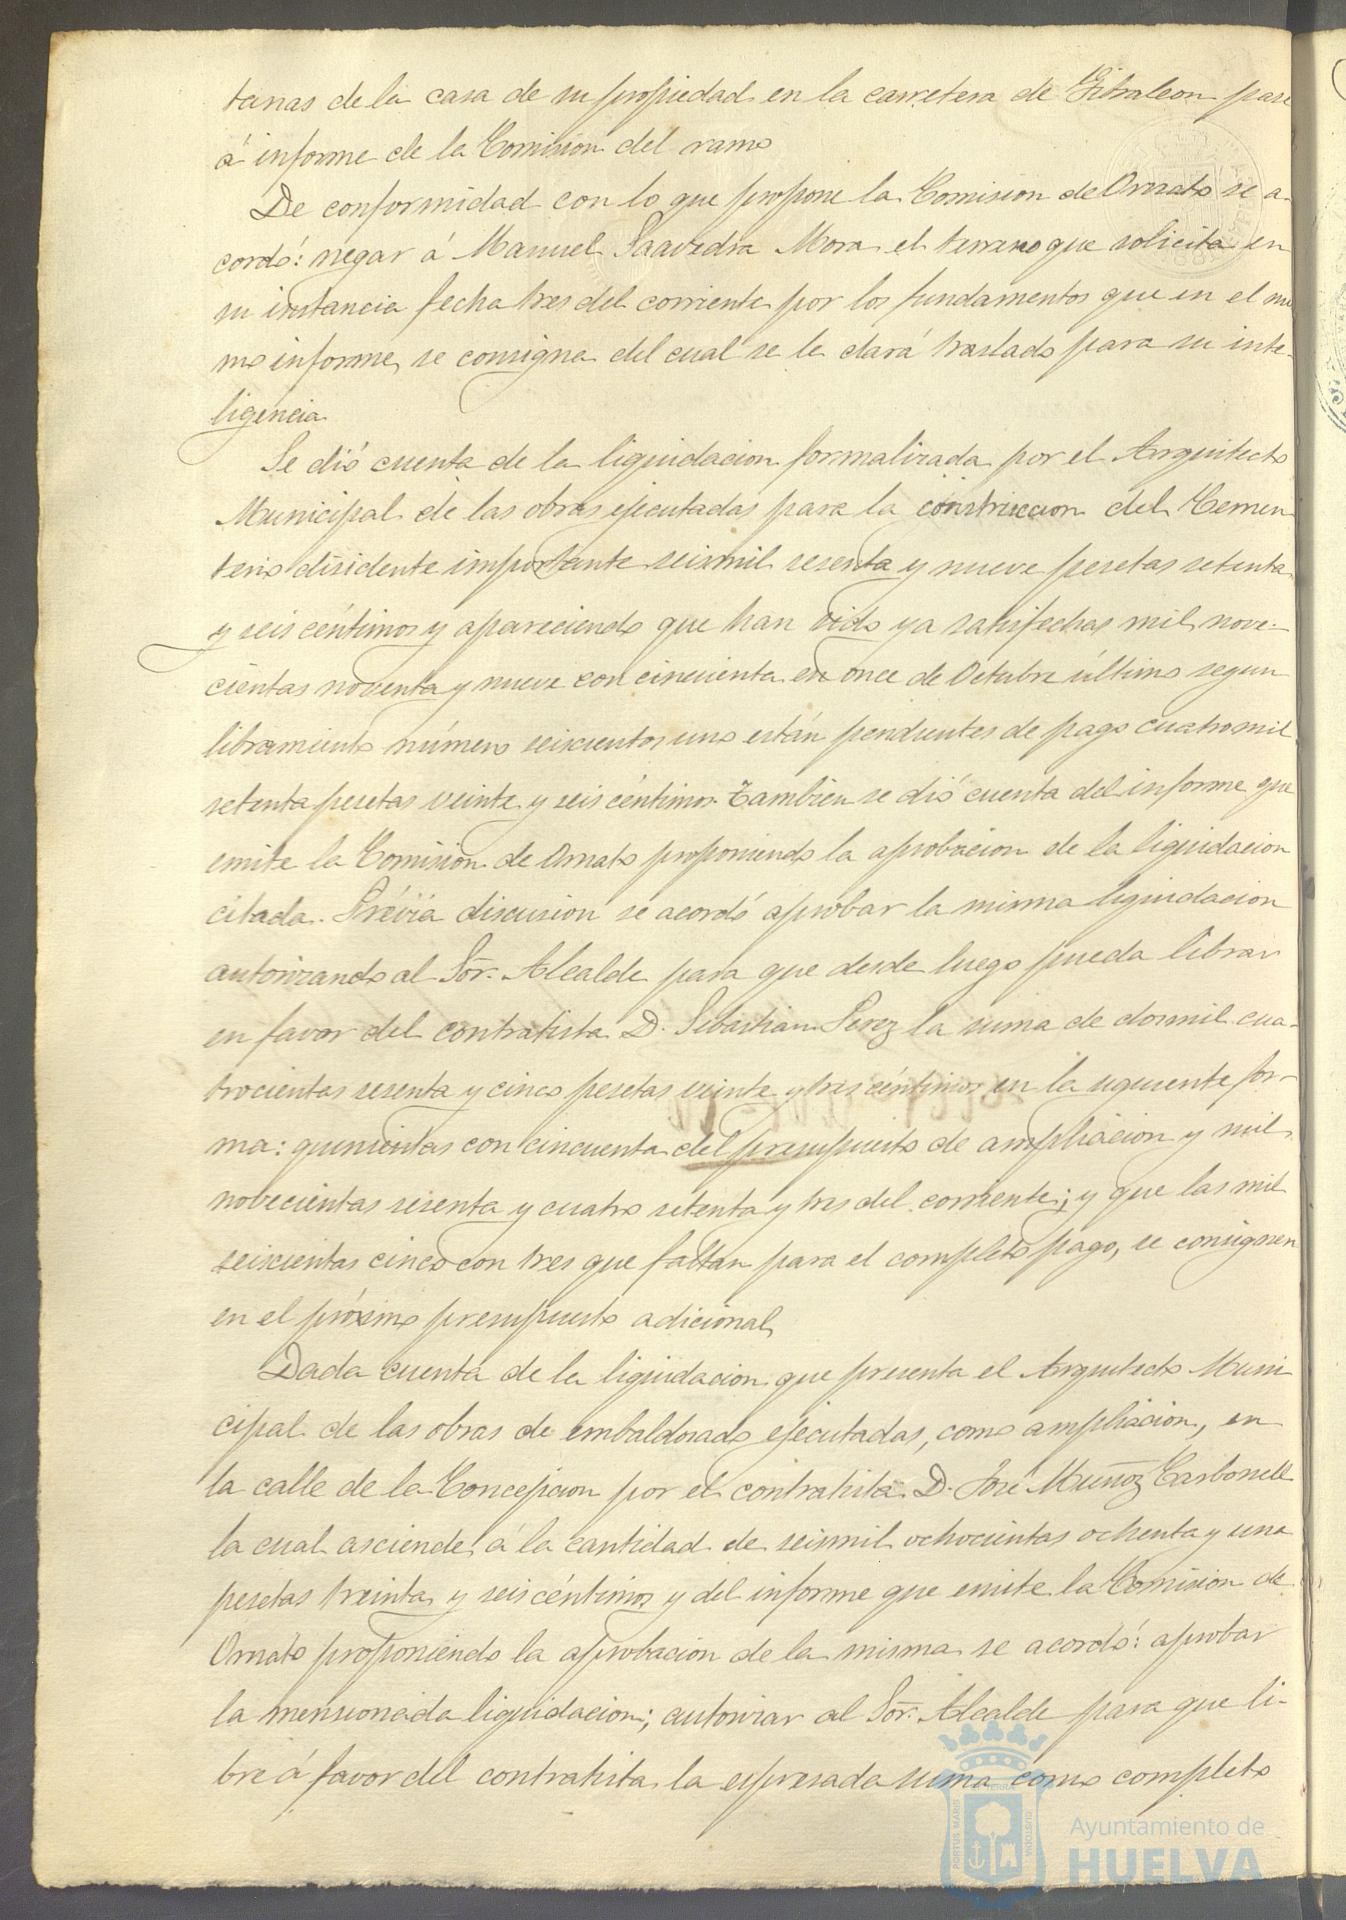 tanas de la casa de su propiedad en la carretera de Gibraleon pase
á informe de la Comision del ramo
De conformidad con lo que propone la Comision de Ornato se a-
cordó: negar á Manuel Saavedra Mora el terreno que solicita en
su instancia fecha tres del corriente por los fundamentos que en el mis
mo informe, se consigna del cual se le dará traslado para su inte-
ligencia
Se dió cuenta de la liquidacion formalizada por el Arquitecto
Municipal de las obras ejecutadas para la construccion del Cemen
terio disidente importante seismil sesenta y nueve pesetas setenta
y seis céntimos y apareciendo que han sido ya satisfechas mil nove-
cientas noventa y nueve con cincuenta en once de Octubre último segun
libramiento número seiscientos uno están pendientes de pago cuatromil
setenta pesetas veinte y seis céntimos. Tambien se dió cuenta del informe que
emite la Comision de Ornato proponiendo la aprobacion de la liquidacion
citada. Prévia discusion se acordó aprobar la misma liquidacion
autorizando al Sor. Alcalde para que desde luego pueda librar
en favor del contratista D. Sebastian Perez la suma de dosmil cua-
trocientas sesenta y cinco pesetas veinte y tres céntimos en la siguiente for-
ma: quinientas con cincuenta del presupuesto de ampliacion y mil
novecientas sesenta y cuatro setenta y tres del corriente; y que las mil
seiscientas cinco con tres que faltan para el completo pago, se consignen
en el próximo presupuesto adicional
Dada cuenta de la liquidacion que presenta el Arquitecto Muni
cipal de las obras de embaldosado ejecutadas, como ampliacion, en
la calle de la Concepcion por el contratista D. José Muñoz Carbonell
la cual asciende á la cantidad de seismil ochocientas ochenta y una
pesetas treinta y seis céntimos y del informe que emite la Comision de
Ornato proponiendo la aprobacion de la misma se acordó: aprobar
la mensionada liquidacion; autorizar al Sor. Alcalde para que li-
bre á favor del contratista la espresada suma como completo
Ayuntamiento de
HUELVA